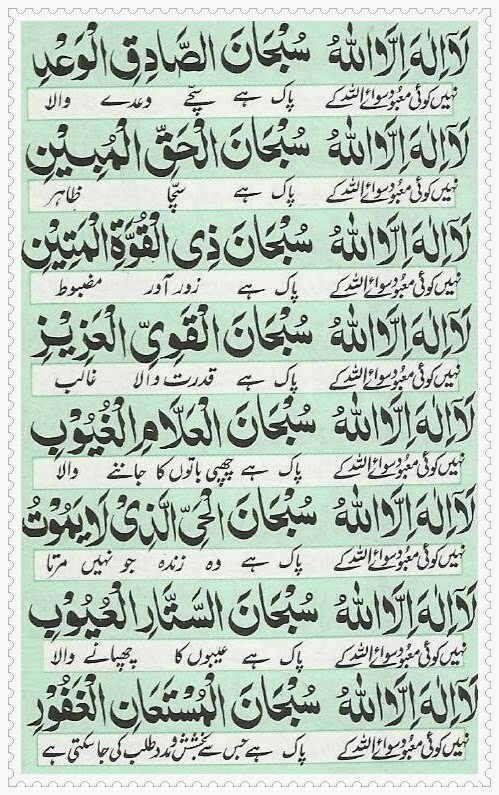 لَآ اِلٰهَ اِلَّا اللهُ سُبْحَانَ الصَّادِقِ الْوَعْدِ
نہیں کوئی معبود سوائے اللہ کے پاک ہے سچّے وعدے والا
لَآ اِلٰهَ اِلَّا اللهُ سُبْحَانَ الْحَقِّ الْمُبِيْنِ
نہیں کوئی معبود سوائے اللہ کے پاک ہے سچّا ظاہر
لَآ اِلٰهَ اِلَّا اللهُ سُبْحَانَ ذِى الْقُوَّةِ الْمَتِيْنِ
نہیں کوئی معبود سوائے اللہ کے پاک ہے زور آور مضبوط
لَآ اِلٰهَ اِلَّا اللهُ سُبْحَانَ الْقَوِىِّ الْعَزِيْزِ
نہیں کوئی معبود سوائے اللہ کے پاک ہے قدرت والا غالب
لَآ اِلٰهَ اِلَّا اللهُ سُبْحَانَ الْعَلَّامِ الْغُيُوْبِ
نہیں کوئی معبود سوائے اللہ کے پاک ہے چھپی باتوں کا جاننے والا
لَآ اِلٰهَ اِلَّا اللهُ سُبْحَانَ الْحَىِّ الَّذِىْ لَا يَمُوْتُ
نہیں کوئی معبود سوائے اللہ کے پاک ہے وہ زندہ جو نہیں مرتا
لَآ اِلٰهَ اِلَّا اللهُ سُبْحَانَ السَّتَّارِ الْعُيُوْبِ
نہیں کوئی معبود سوائے اللہ کے پاک ہے عیبوں کا چھپانے والا
لَآ اِلٰهَ اِلَّا اللهُ سُبْحَانَ الْمُسْتَعَانِ الْغَفُوْرِ
نہیں کوئی معبود سوائے اللہ کے پاک ہے جس سے بخشش و مدد طلب کی جا سکتی ہے